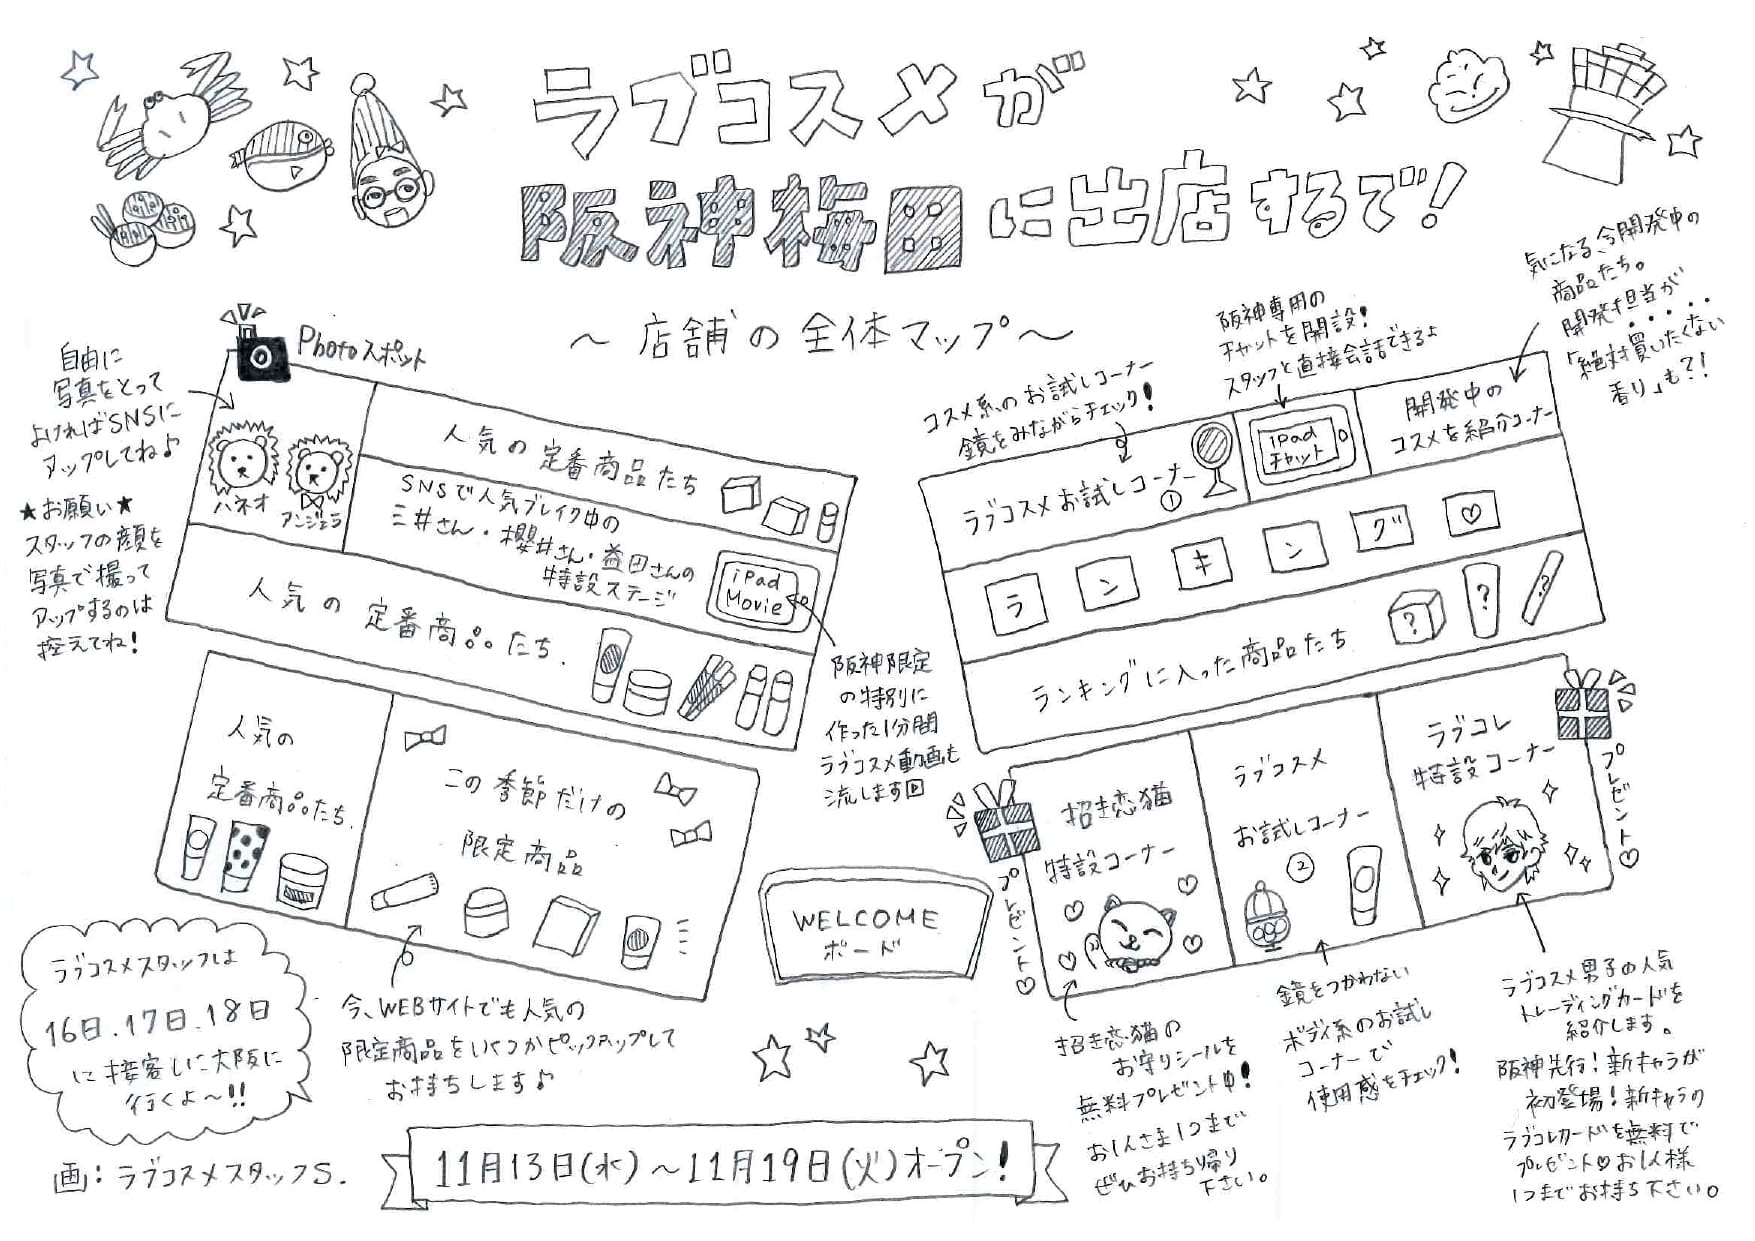 ラブコスメが
阪神梅田に出店するで!
〜店舗の全体マップ〜
Photoスポット
自由に
写真をとって
よければSNSに
アップしてね♪
★お願い★
スタッフの顔を
写真で撮って
アップするのは
控えてね!
ハネオ
アンジェラ
人気の定番商品たち
SNSで人気ブレイク中の
三井さん・櫻井さん・益田さんの
特設ステージ
iPad
Movie
人気の定番商品たち.
阪神限定
の特別に
作った1分間
ラブコスメ動画も
流します
人気の
定番商品たち.
この季節だけの
限定商品
今、WEBサイトでも人気の
限定商品をいくつかピックアップして
お持ちします♪
ラブコスメスタッフは
16日.17日.18日
に接客しに大阪に
行くよ〜!!
画:ラブコスメスタッフS.
WELCOME
ボード
11月13日(水)〜11月19日(火)オープン!
コスメ系のお試しコーナー
鏡をみながらチェック!
阪神専用の
チャットを開設!
スタッフと直接会話できるよ
気になる、今開発中の
商品たち。
開発担当が
「絶対買いたくない
香り」も?!
ラブコスメお試しコーナー
①
iPad
チャット
開発中の
コスメを紹介コーナー
ランキング♡
ランキングに入った商品たち
? ? ?
招き恋猫
特設コーナー
プレゼント♡
ラブコスメ
お試しコーナー
②
ラブコレ
特設コーナー
プレゼント♡
招き恋猫の
お守りシールを
無料プレゼント中!
お1人さま1つまで
ぜひお持ち帰り
下さい。
鏡をつかわない
ボディ系のお試し
コーナーで
使用感をチェック!
ラブコスメ男子の人気
トレーディングカードを
紹介します。
阪神先行!新キャラが
初登場!新キャラの
ラブコレカードを無料で
プレゼント♡お1人様
1つまでお持ち下さい。